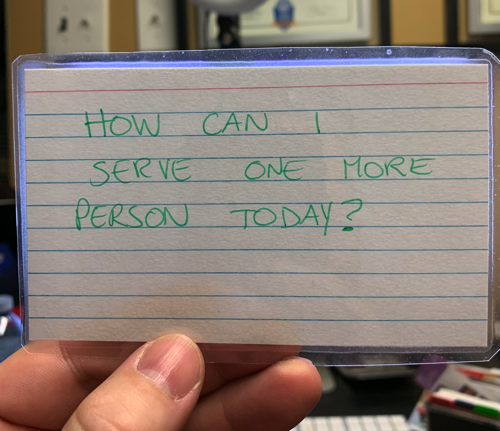 HOW CAN I
SERVE ONE MORE
PERSON TODAY?